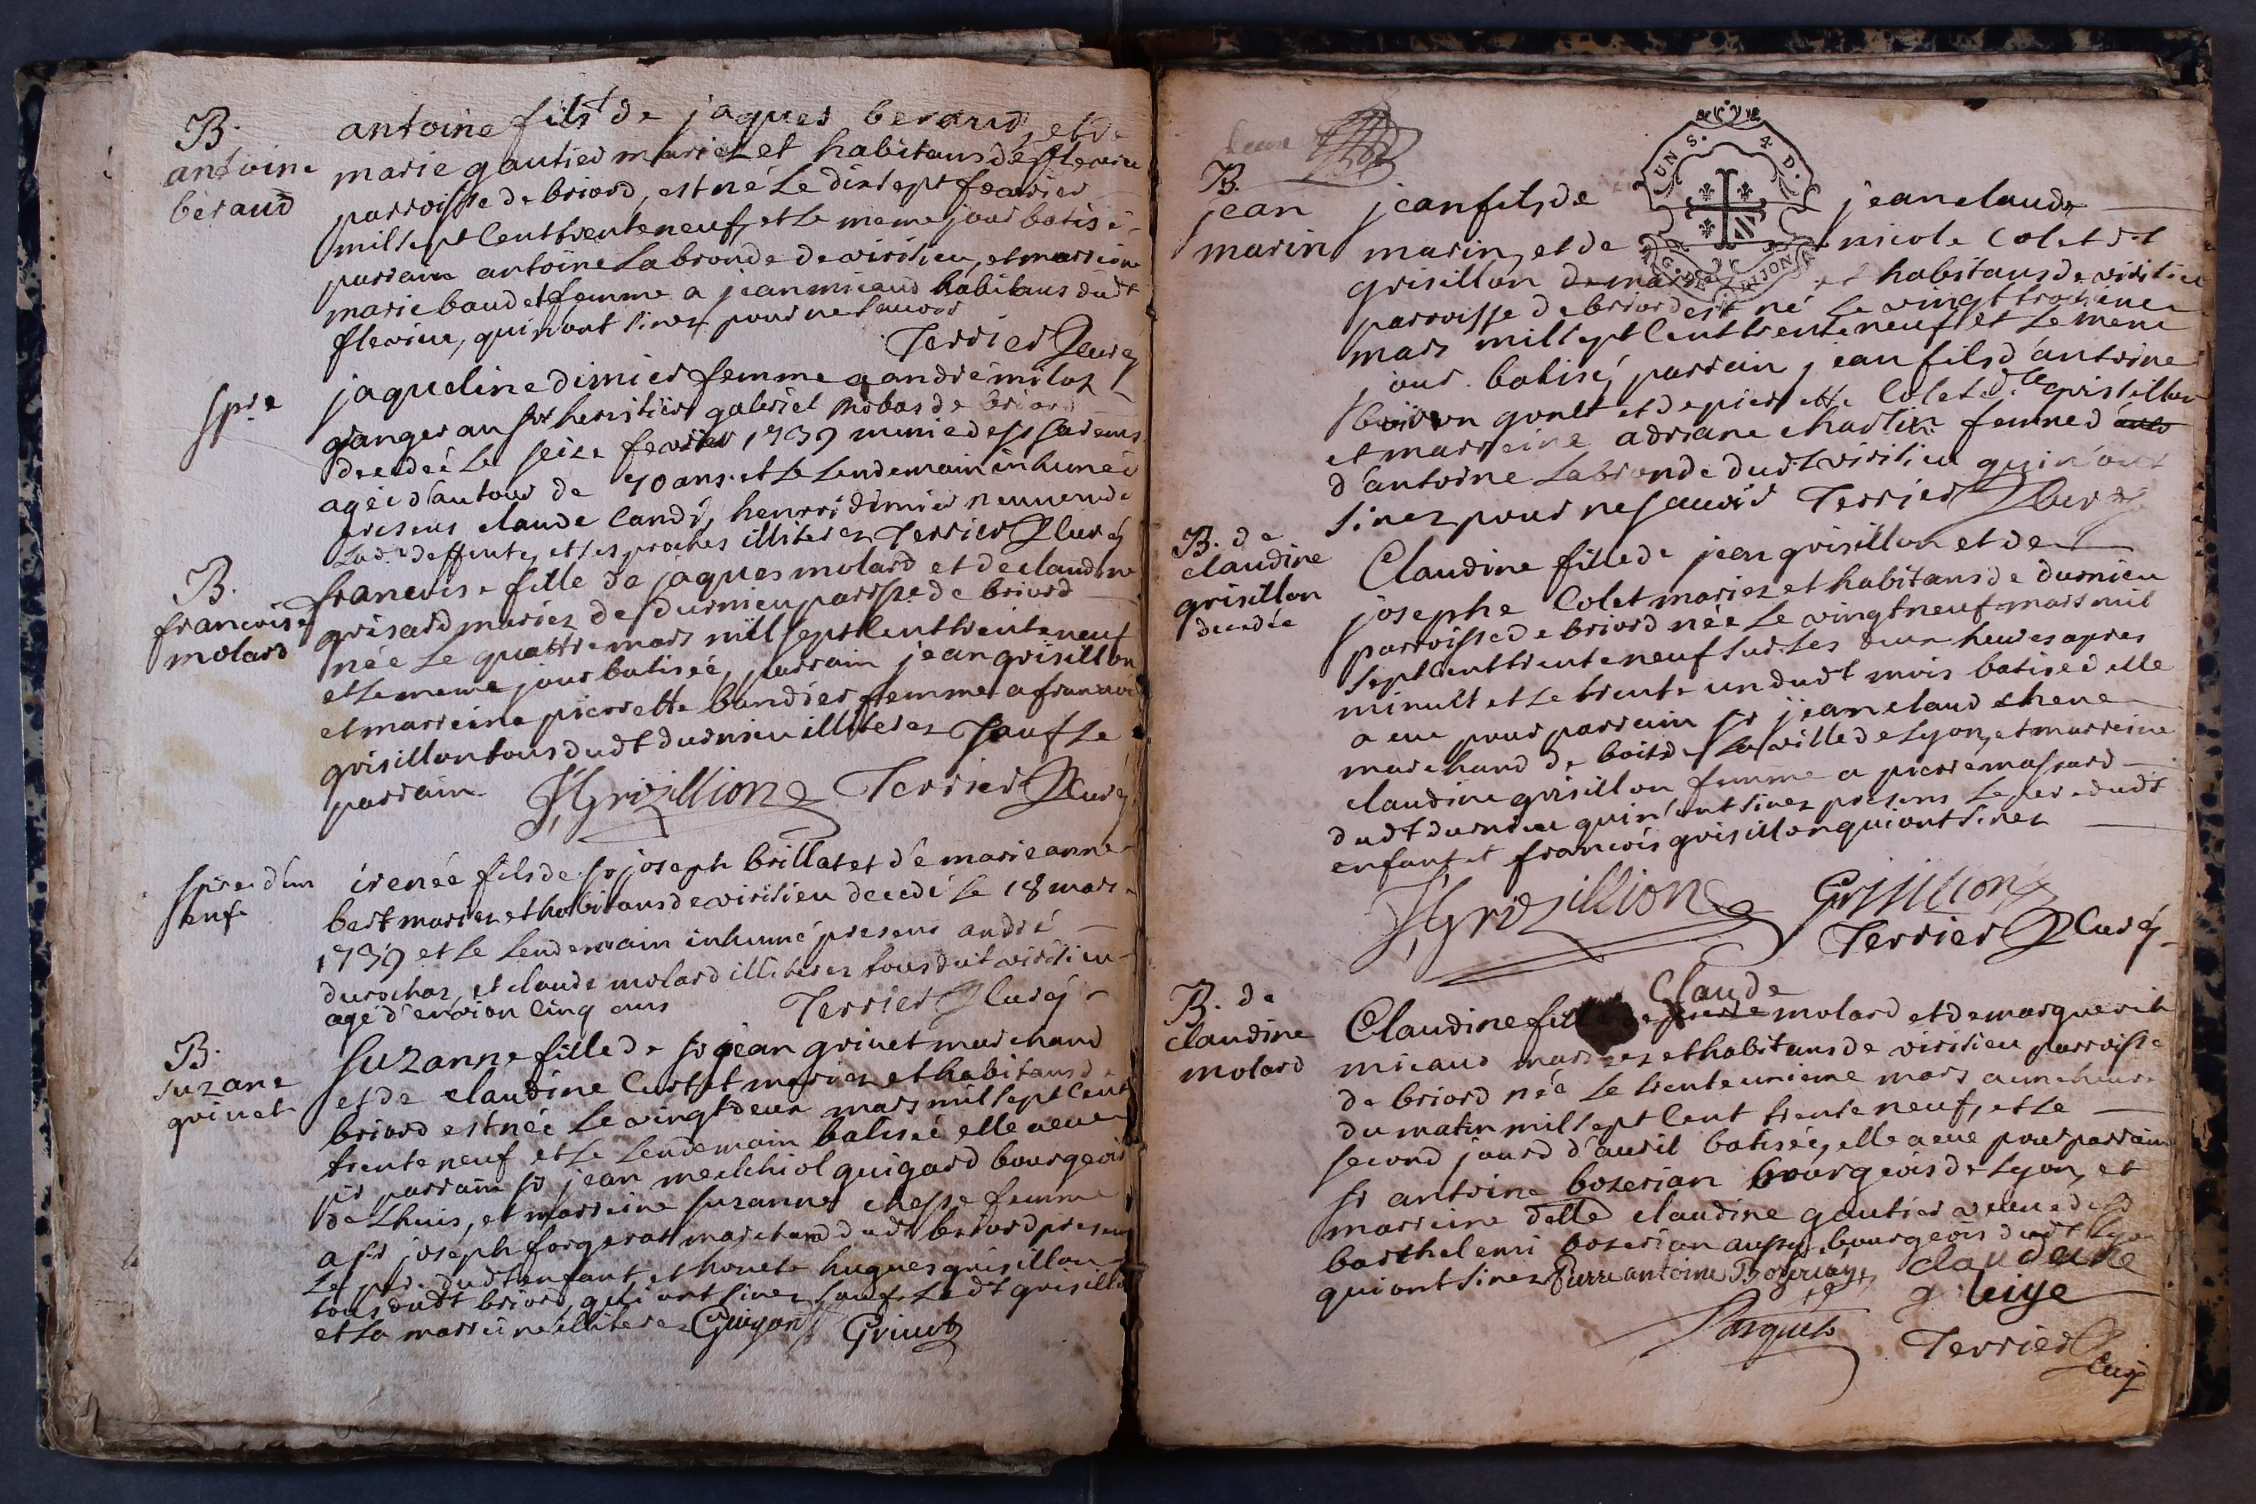 B.
antoine
béraud
antoine fils de jaques beraud, et de
marie gautier mariez et habitans de flevieu
parroisse de briord, est né le dix sept fevrier
mil sept cent trente neuf, et le meme jour batisé
parrain antoine labronde de virisieu, et marreine
marie baudet femme a jean micaud habitans dudt
flevieu, qui n'ont sinez pour ne sauoir
Terrier Curé
spre
jaqueline dimier femme a andré miloz
granger au sr heritier gabriel de briord
decedée le seize fevrier 1739 munie de ss sacremens
agée d'autour de 70 ans et le lendemain inhumée
presens claude candi, henri dimier neuveu de
lade deffunte, et ses proches illiterez Terrier Curé
B.
francoise
molard
francoise fille de jaques molard et de claudine
grisard mariez de durnieu parrsse de briord
née le quattre mars mil sept cent trente neuf
et le meme jour batisée, parrain jean grisillon
et marreine pierrette bandier femme a francois
grisillon tous dudt durnieu illiterez sauf le
parrain J Grizillion Terrier Curé
spre d'un
enf.
irenée fils de sr joseph brillat et de marie anne
bert mariez et habitans de virisieu decedé le 18 mars
1739 et le lendemain inhumé presens andré
durochaz, et claude molard illiterez tous dudt virisieu
agé d'environ cinq ans Terrier Curé
B.
suzane
grivet
suzanne fille de sr jean grivet marchand
et de claudine curtet mariez et habitans de
briord est née le vingt deux mars mil sept cent
trente neuf et le lendemain batisée elle a eue
pr parrain sr jean melchiol guigard bourgeois
de Lhuis, et marreine suzanne chesse femme
a sr joseph forgerat marchand dudt briord presens
le pere dudt enfant et honete hugues grisillon
tous dudt briord, qui ont sinez sauf ledt grisillon
et la marreine illiterez Guigard Grivet
UN S. 4 D.
G. DE DIJON
B.
jean
marin
jean fils de jean claude
marin, et de nicole Colet dt
grisillon et habitans de virisieu
parroisse de briord est né le vingt troisieme
mars mil sept cent trente neuf et le meme
jour batisé, parrain jean fils d'antoine
gonet et de pierrette Colet dte grisillon
et marreine adriane chastin femme
d'antoine labronde dudt virisieu qui n'ont
sinez pour ne sauoir Terrier Curé
B. de
claudine
grisillon
decedée
Claudine fille de jean grisillon et de
josephe Colet mariez et habitans de durnieu
parroisse de briord née le vingt neuf mars mil
sept cent trente neuf sur les deux heures apres
minuit et le trente un dudt mois batisée elle
a eue pour parrain sr jean claud chene
marchand de bois de la ville de Lyon, et marreine
claudine grisillon femme a pierre massard
dudt durnieu qui n'ont sinez presens le pere dudt
enfant et francois grisillon qui ont sinez
J Grizillion Grisillion
Terrier Curé
B. de
claudine
molard
Claude
Claudine fille de molard et de marguerite
micaud mariez et habitans de virisieu parroisse
de briord née le trente unieme mars a une heure
du matin mil sept cent trente neuf, et le
second jour d'avril batisée, elle a eue pour parrain
sr antoine bozerian bourgeois de Lyon, et
marreine delle claudine gautier veuve de sr
barthelemi bozerian aussy bourgeois dudt Lyon
qui ont sinez Pierre antoine Bozerian claudine
Parquet
Terrier
Curé